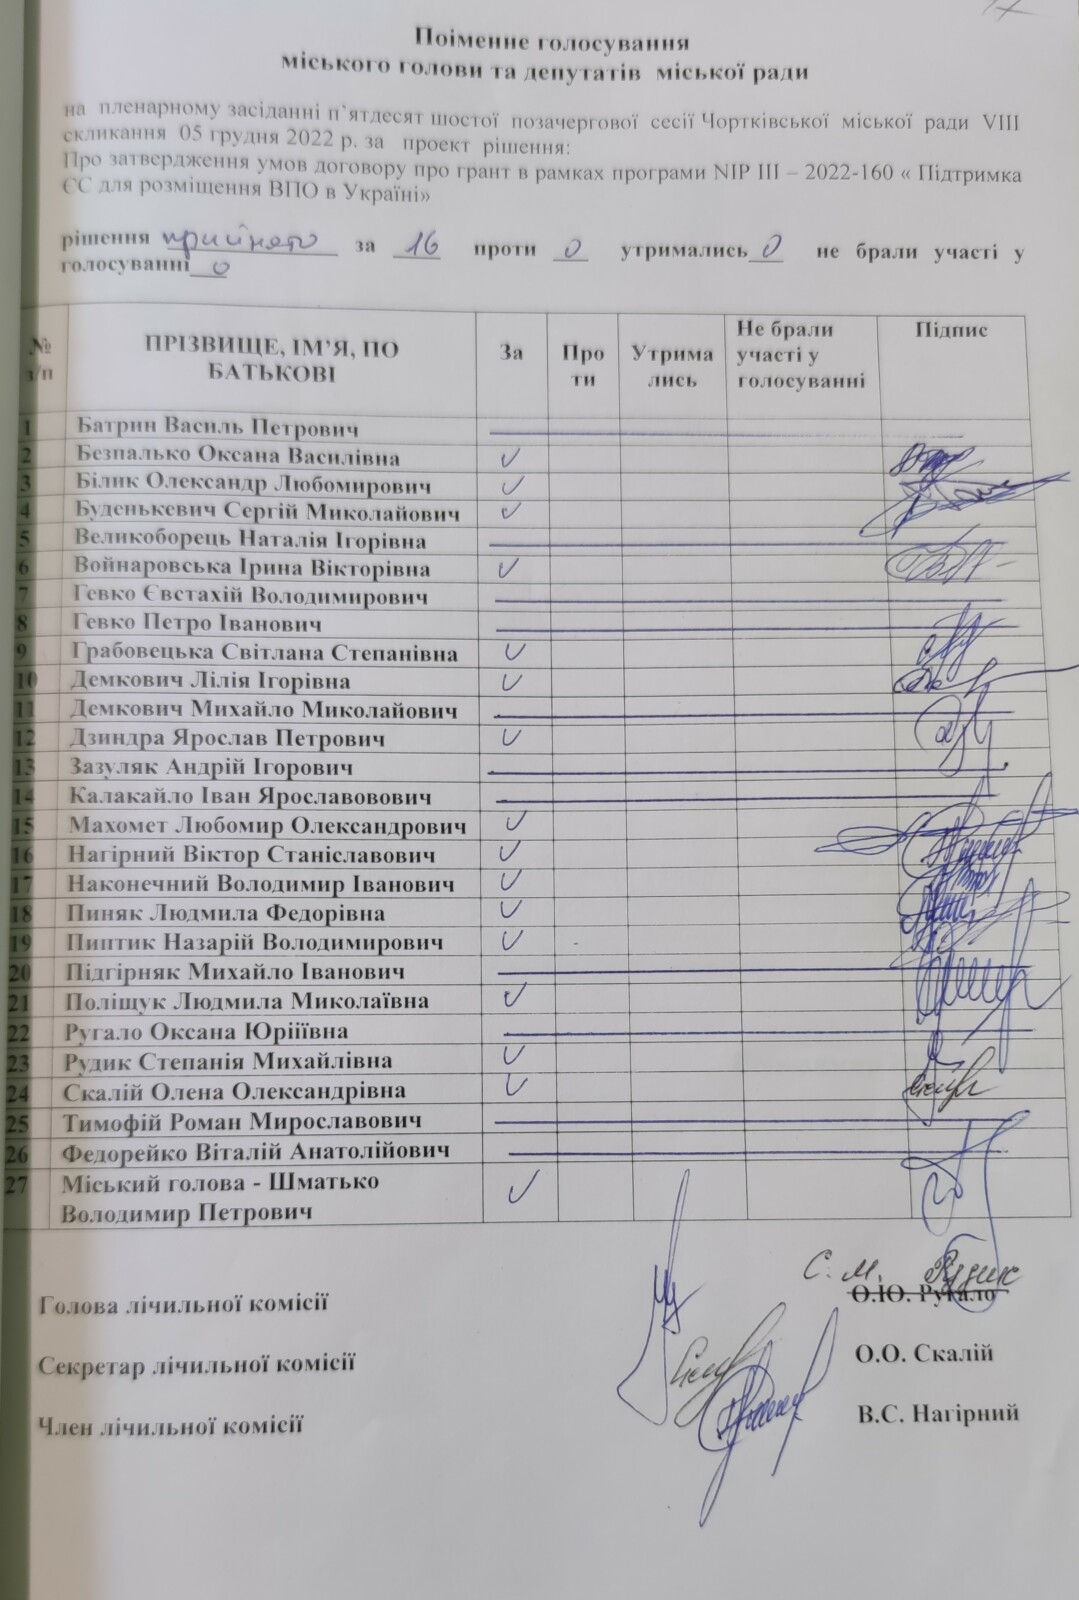 Поіменне голосування
міського голови та депутатів міської ради
на пленарному засіданні п`ятдесят шостої позачергової сесії Чортківської міської ради VIII
скликання 05 грудня 2022 р. за проект рішення:
Про затвердження умов договору про грант в рамках програми NIP III – 2022-160 « Підтримка
ЄС для розміщення ВПО в Україні»
рішення прийнято за 16 проти 0 утримались 0 не брали участі у
голосуванні 0
№ з/п ПРІЗВИЩЕ, ІМ’Я, ПО БАТЬКОВІ За Про ти Утрима лись Не брали участі у голосуванні Підпис
1 Батрин Василь Петрович
2 Безпалько Оксана Василівна ✓
3 Білик Олександр Любомирович ✓
4 Буденькевич Сергій Миколайович ✓
5 Великоборець Наталія Ігорівна
6 Войнаровська Ірина Вікторівна ✓
7 Гевко Євстахій Володимирович
8 Гевко Петро Іванович
9 Грабовецька Світлана Степанівна ✓
10 Демкович Лілія Ігорівна ✓
11 Демкович Михайло Миколайович
12 Дзиндра Ярослав Петрович ✓
13 Зазуляк Андрій Ігорович
14 Калакайло Іван Ярославовович
15 Махомет Любомир Олександрович ✓
16 Нагірний Віктор Станіславович ✓
17 Наконечний Володимир Іванович ✓
18 Пиняк Людмила Федорівна ✓
19 Пиптик Назарій Володимирович ✓
20 Підгірняк Михайло Іванович
21 Поліщук Людмила Миколаївна ✓
22 Ругало Оксана Юріїївна
23 Рудик Степанія Михайлівна ✓
24 Скалій Олена Олександрівна ✓
25 Тимофій Роман Мирославович
26 Федорейко Віталій Анатолійович
27 Міський голова - Шматько Володимир Петрович ✓
С. М. Рудик
Голова лічильної комісії О.Ю. Ругало
Секретар лічильної комісії О.О. Скалій
Член лічильної комісії В.С. Нагірний